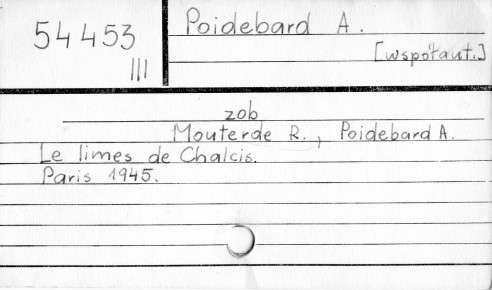 54 453
III
Poidebard A.
[współaut.]
zob
Mouterde R., Poidebard A.
Le limes de Chalcis.
Paris 1945.